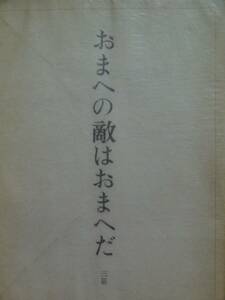 おまへの敵はおまへだ